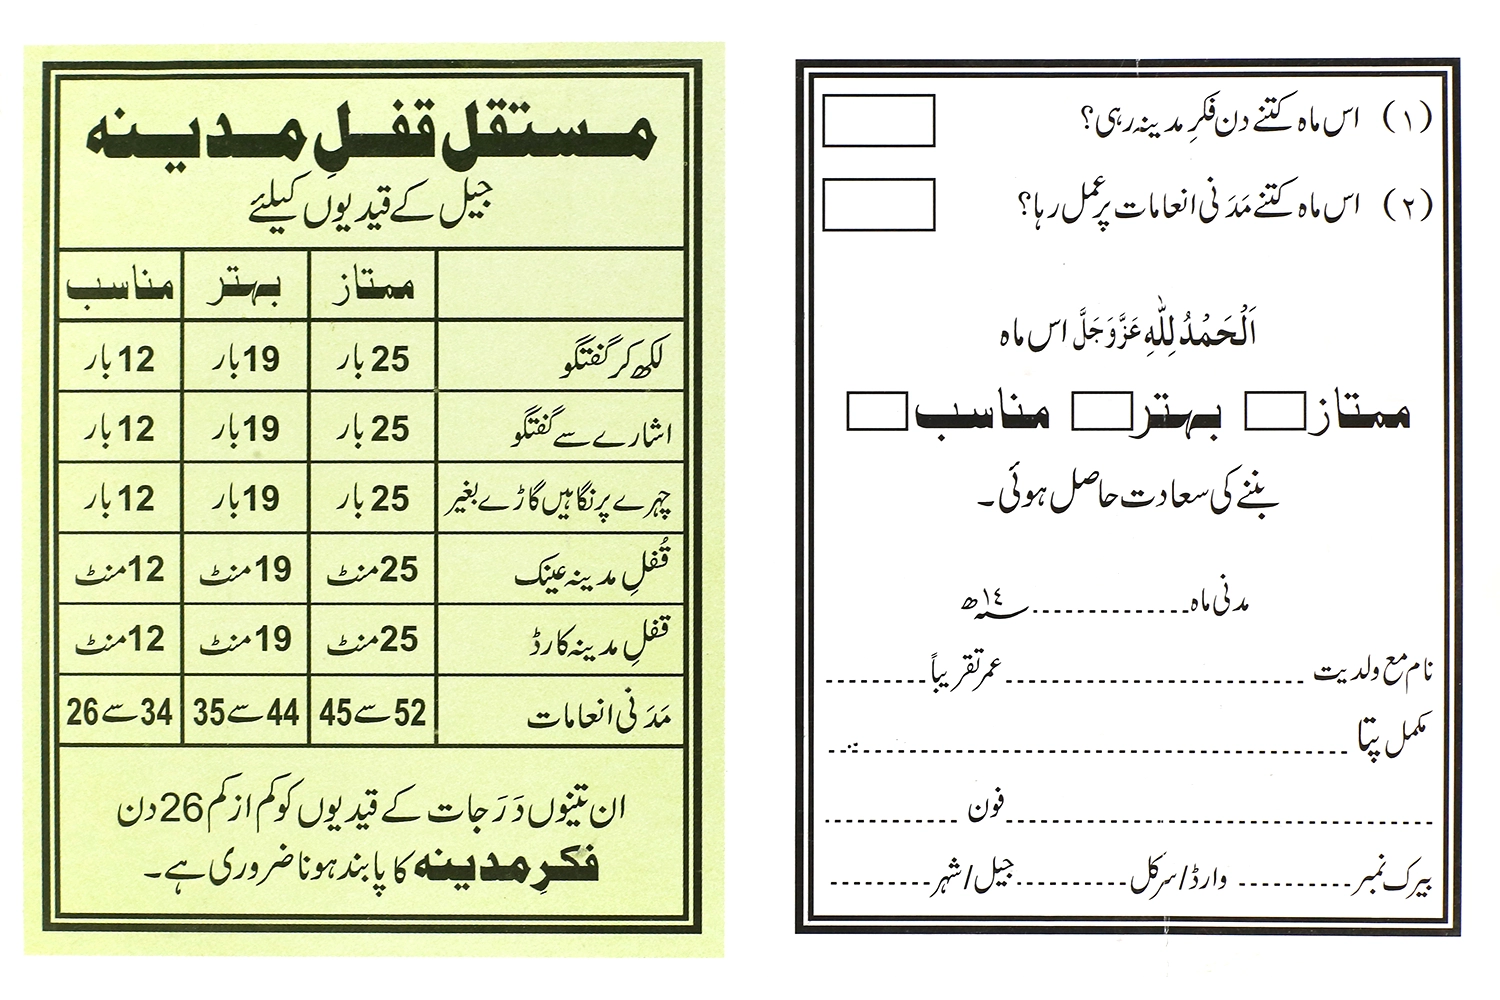 مستقل قفلِ مدینہ
جیل کے قیدیوں کیلئے
ممتاز بہتر مناسب
لکھ کر گفتگو 25 بار 19 بار 12 بار
اشارے سے گفتگو 25 بار 19 بار 12 بار
چہرے پر نگاہیں گاڑے بغیر 25 بار 19 بار 12 بار
قُفلِ مدینہ عینک 25 منٹ 19 منٹ 12 منٹ
قفلِ مدینہ کارڈ 25 منٹ 19 منٹ 12 منٹ
مَدَنی انعامات 52 سے 45 44 سے 35 34 سے 26
ان تینوں دَرَجات کے قیدیوں کو کم از کم 26 دن
فکرِ مدینہ کا پابند ہونا ضروری ہے۔
(۱) اس ماہ کتنے دن فکرِ مدینہ رہی؟
(۲) اس ماہ کتنے مَدَنی انعامات پر عمل رہا؟
اَلْحَمْدُ لِلّٰہِ عَزَّوَجَلَّ اس ماہ
ممتاز بہتر مناسب
بننے کی سعادت حاصل ہوئی۔
مدنی ماہ ............. سنہ ١٤ھ
نام مع ولدیت ............................ عمر تقریباً ..........
مکمل پتا ..................................................
........................................ فون .............
بیرک نمبر ........... وارڈ/سرکل ........... جیل/شہر ..........